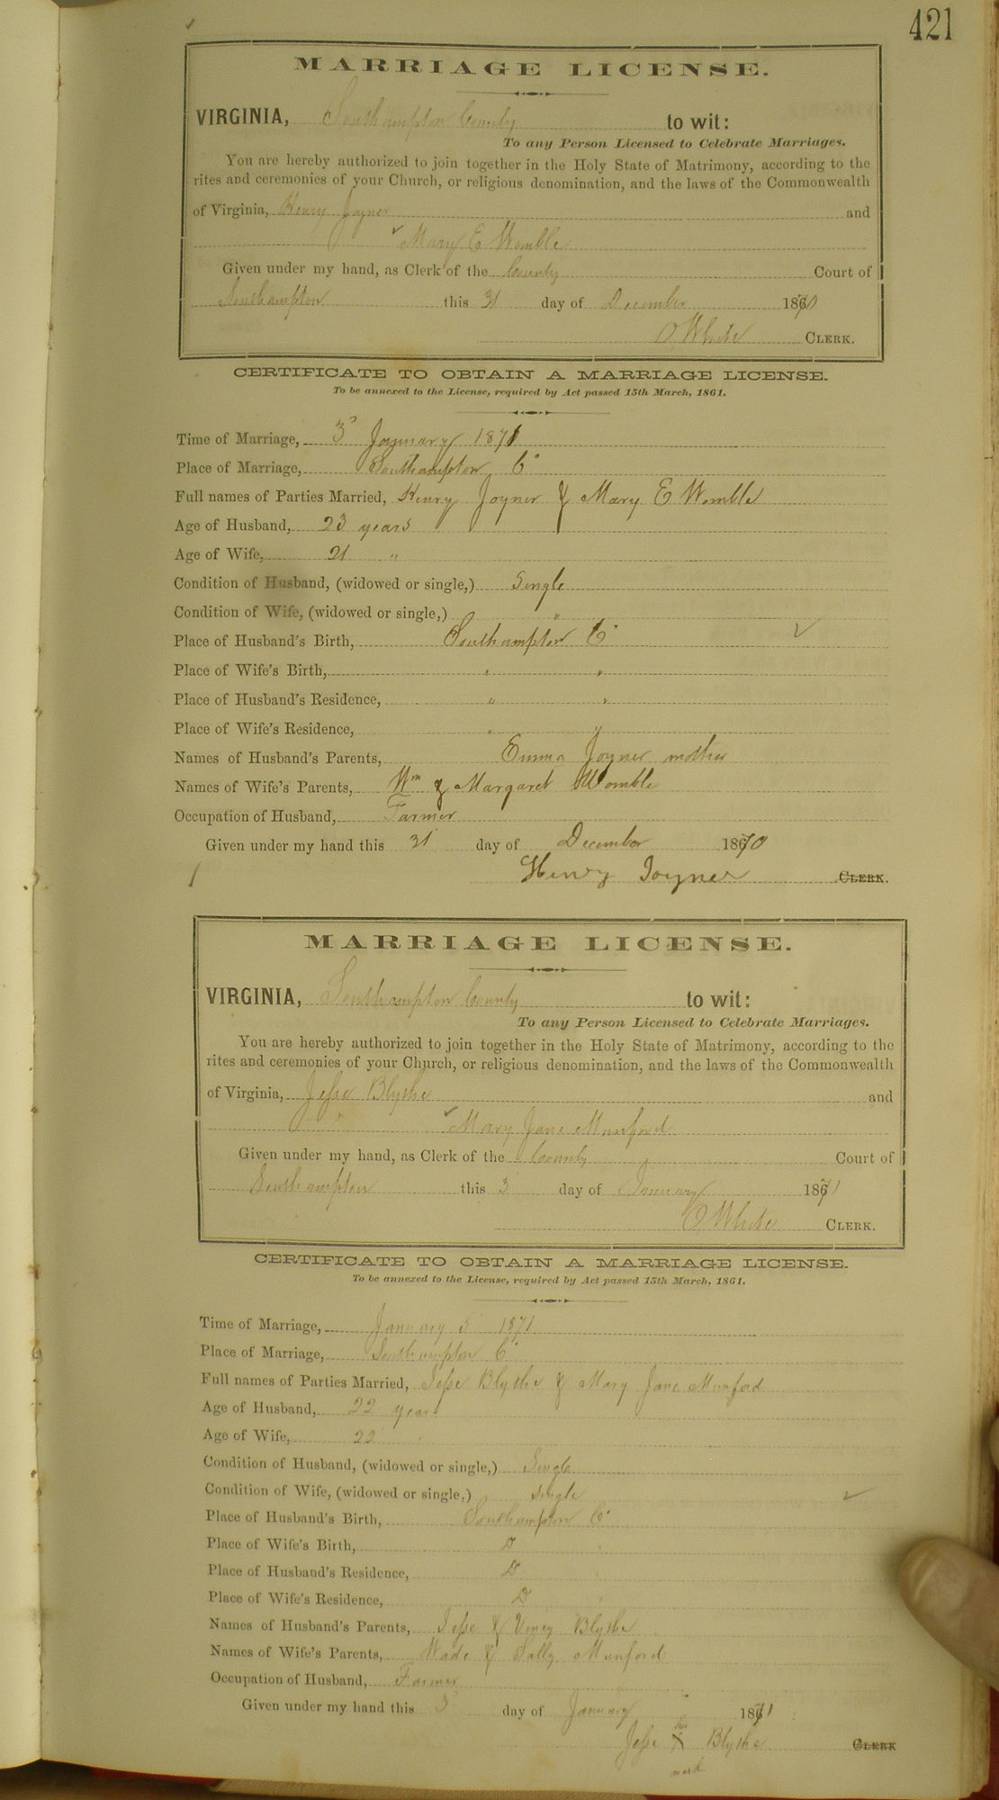 421
MARRIAGE LICENSE.
VIRGINIA, Southampton County to wit:
To any Person Licensed to Celebrate Marriages.
You are hereby authorized to join together in the Holy State of Matrimony, according to the
rites and ceremonies of your Church, or religious denomination, and the laws of the Commonwealth
of Virginia, Henry Joyner and
Mary E Womble
Given under my hand, as Clerk of the County Court of
Southampton this 31 day of December 1870
O White CLERK.
CERTIFICATE TO OBTAIN A MARRIAGE LICENSE.
To be annexed to the License, required by Act passed 15th March, 1861.
Time of Marriage, 3d January 1871
Place of Marriage, Southampton Co
Full names of Parties Married, Henry Joyner & Mary E Womble
Age of Husband, 23 years
Age of Wife, 21 "
Condition of Husband, (widowed or single,) Single
Condition of Wife, (widowed or single,) "
Place of Husband's Birth, Southampton Co
Place of Wife's Birth, " "
Place of Husband's Residence, " "
Place of Wife's Residence, " "
Names of Husband's Parents, Emma Joyner mother
Names of Wife's Parents, Wm & Margaret Womble
Occupation of Husband, Farmer
Given under my hand this 31 day of December 1870
Henry Joyner CLERK.
MARRIAGE LICENSE.
VIRGINIA, Southampton County to wit:
To any Person Licensed to Celebrate Marriages.
You are hereby authorized to join together in the Holy State of Matrimony, according to the
rites and ceremonies of your Church, or religious denomination, and the laws of the Commonwealth
of Virginia, Jesse Blythe and
Mary Jane Munford
Given under my hand, as Clerk of the County Court of
Southampton this 3 day of January 1871
O White CLERK.
CERTIFICATE TO OBTAIN A MARRIAGE LICENSE.
To be annexed to the License, required by Act passed 15th March, 1861.
Time of Marriage, January 5 1871
Place of Marriage, Southampton Co
Full names of Parties Married, Jesse Blythe & Mary Jane Munford
Age of Husband, 22 years
Age of Wife, 22
Condition of Husband, (widowed or single,) Single
Condition of Wife, (widowed or single,) Single
Place of Husband's Birth, Southampton Co
Place of Wife's Birth, D
Place of Husband's Residence, D
Place of Wife's Residence, D
Names of Husband's Parents, Jesse & Viney Blythe
Names of Wife's Parents, Wade & Sally Munford
Occupation of Husband, Farmer
Given under my hand this 3 day of January 1871
his
Jesse X Blythe CLERK
mark